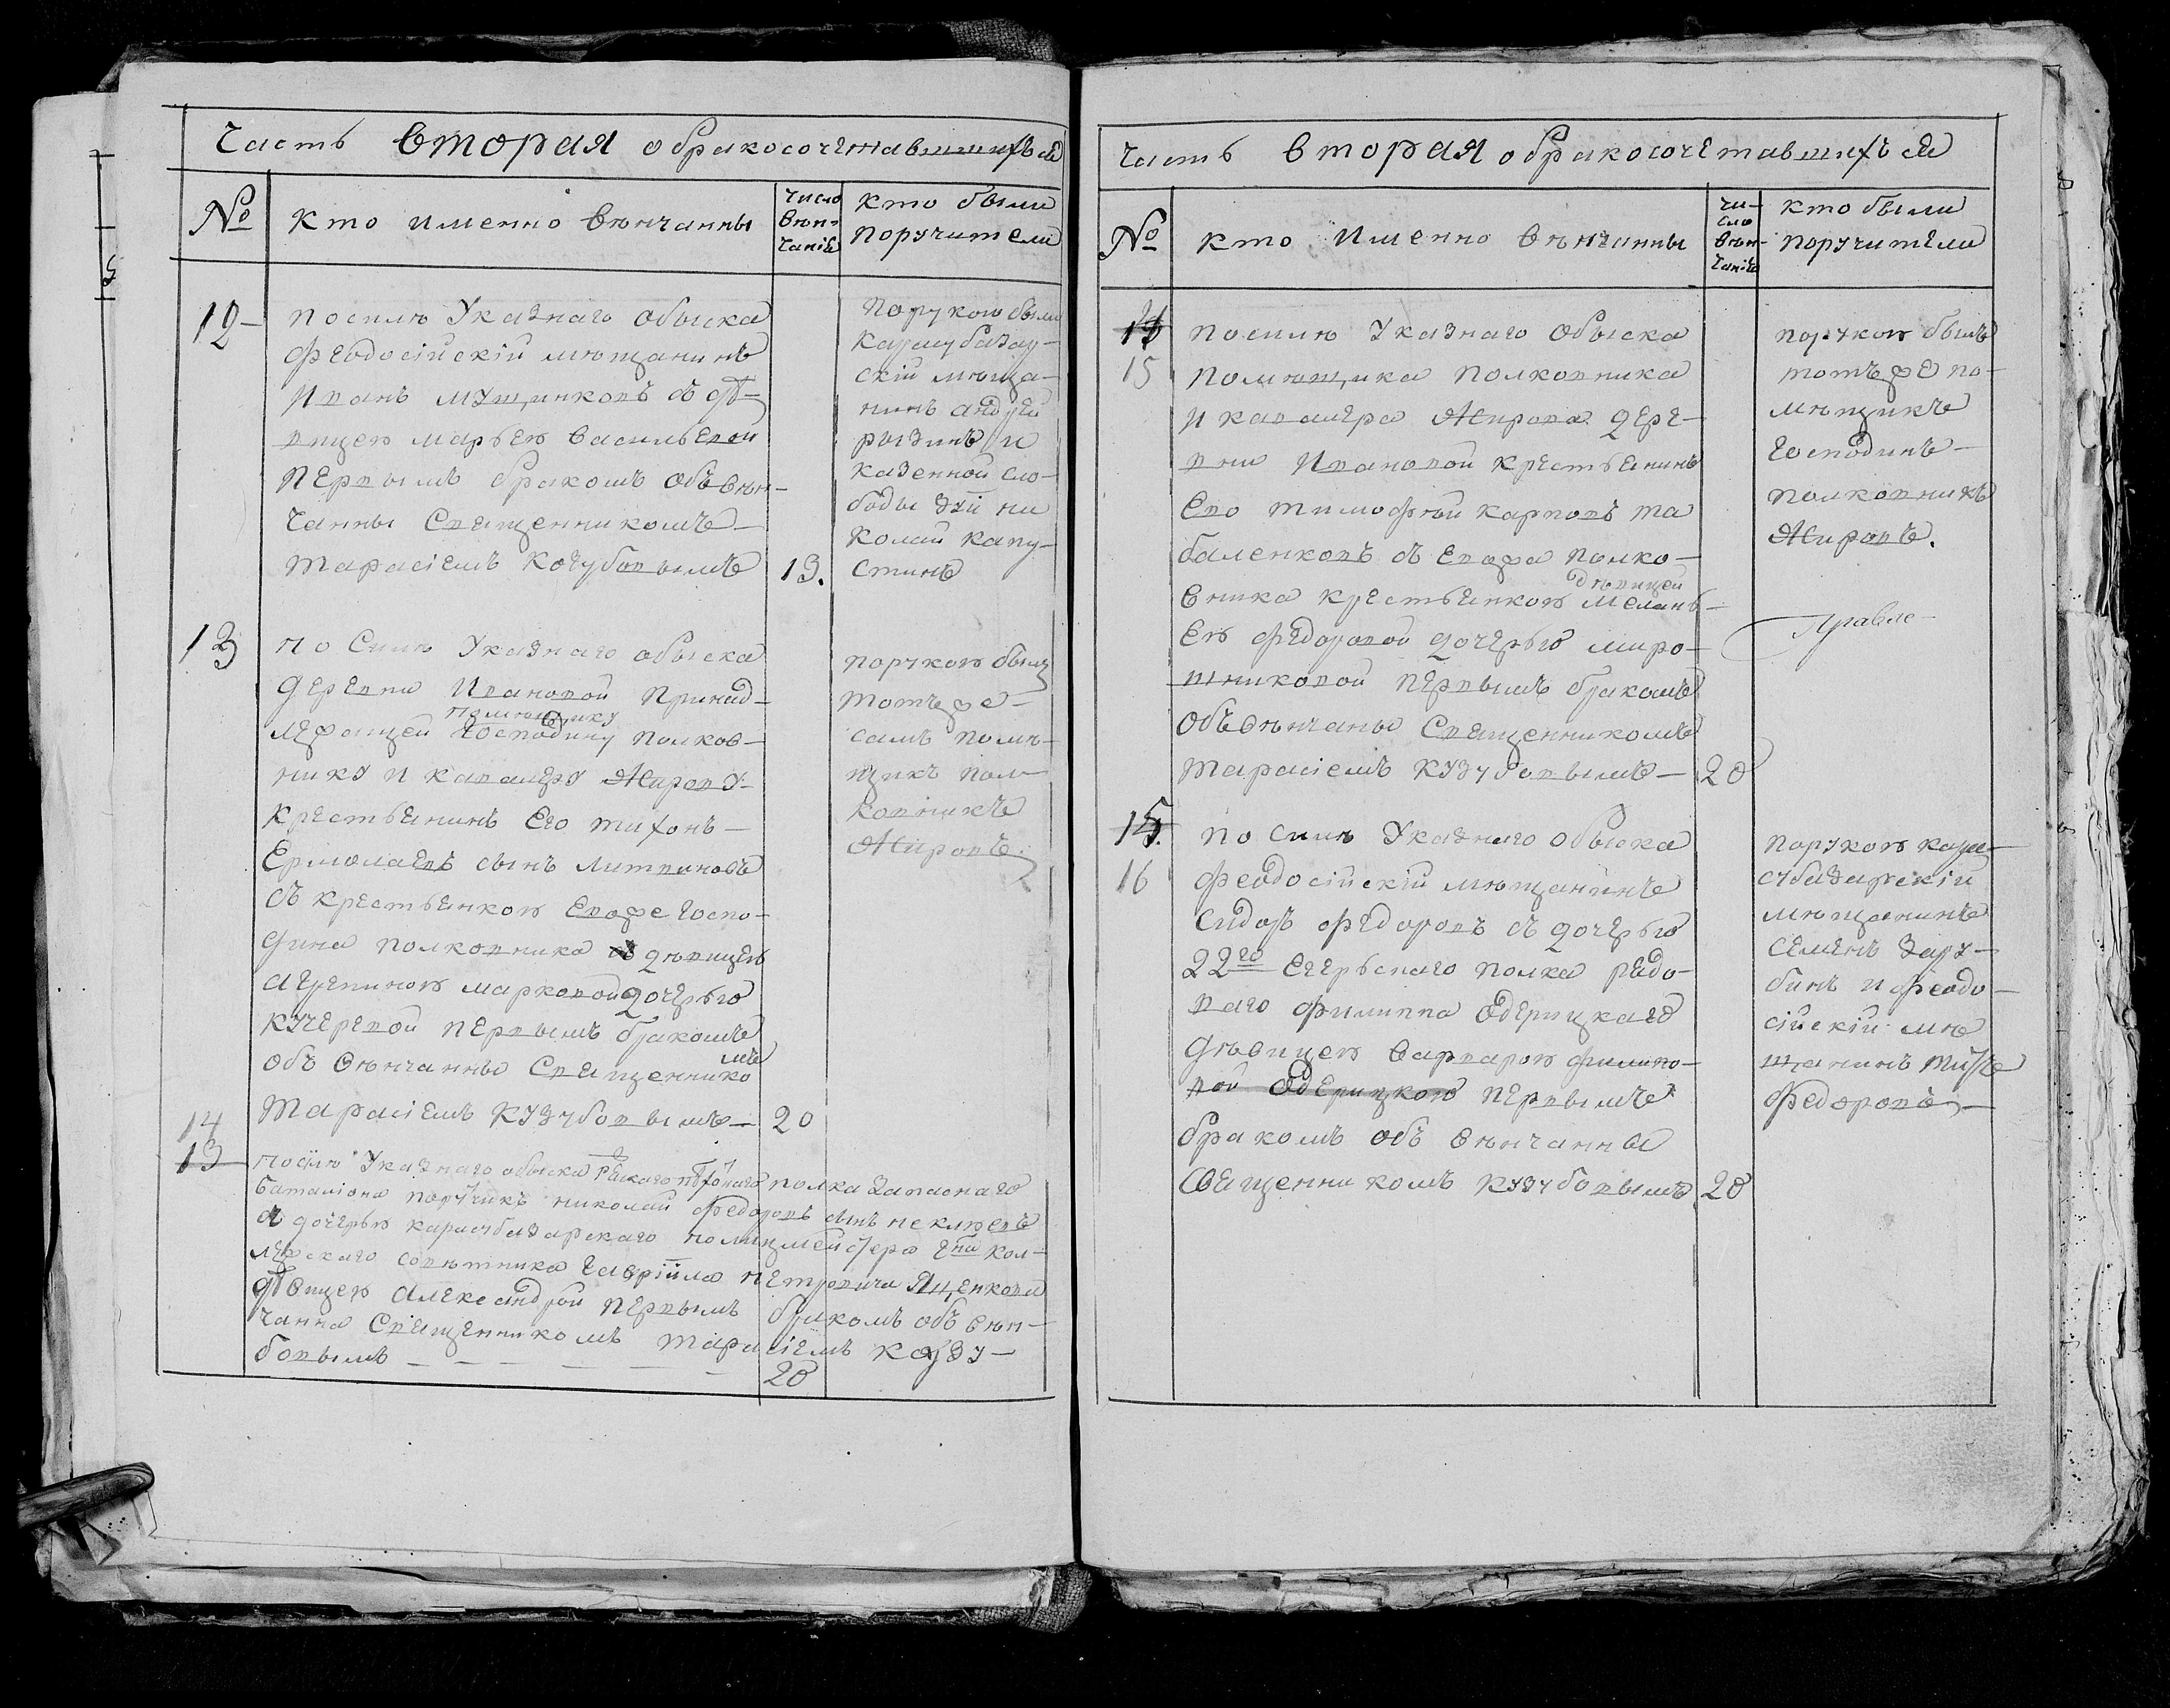 Часть вторая о бракосочетавшихъся
№
кто именно венчанны
число
венчаніе
кто были
поручители
12
посилѣ Указнаго обыска
Феодосійскій мѣщанинъ
Иванъ Мущинковъ съ дѣ-
вицею Марьею Васильевой
первымъ бракомъ объ вѣн-
чанны Священникомъ
Тарасіемъ Козубовымъ
13.
порукою были
Карасубазар-
скій мѣща-
нинъ андрей
рызинъ и
казенной сло-
боды Зуй ни
колай капу-
стинъ
13
по Силѣ Указнаго обыска
деревни Ивановой Принад-
помѣщику
лежащей Господину полков-
нику и кавалеру Жирову
крестьянинъ Его тихонъ
Ермолаевъ сынъ Литвиновъ
съ крестьянкою Евоже госпо-
дина полковника дѣвицею
агрепиною марковой дочерью
кучеревой первымъ бракомъ
объ вѣнчанны Священнико
мъ
Тарасіемъ кузубовымъ
20
порукою былъ
тотъже
самъ помѣ-
щикъ пол-
ковникъ
Жировъ.
14
13
посилѣ Указнаго обыска пѣхотнаго полка Запаснаго
баталіона порутчикъ николай Федоровъ сынъ неклюевъ
съ дочерью карасубазарскаго полицмейстера коль-
лежскаго совѣтника гавріила петровича Яценкова
дѣвицею Александрой первымъ бракомъ объ вѣн-
чанна Священникомъ тарасіемъ козу-
бовымъ
20
Часть вторая о бракосочетавшихъся
№
кто Именно вѣнчанны
чи-
сло
вѣн-
чаніе
кто были
поручители
14
15
посилѣ Указнаго обыска
помѣщика полковника
и кавалера Жирова дере-
вни Ивановой крестьянинъ
Ево тимофѣй карповъ та
баленковъ съ Евожа полко-
дѣвицей
вника крестьянкою мелань-
ею федоровой дочерью миро-
шниковой первымъ бракомъ
объвѣнчаны Священникомъ
Тарасіемъ кузубовымъ
20
порукою былъ
тотъже по-
мѣщикъ
Господинъ
полковникъ
Жировъ.
15.
16
по силѣ Указнаго обыска
феодосійскій мѣщанинъ
сидоръ федоровъ съ дочерью
22го Егерьскаго полка редо-
ваго филиппа Одерицкаго
дѣвицею варварою филипо-
вой Одерицкою первымъ
бракомъ объ вѣнчанны
Священникомъ кузубовымъ
20
порукою кара-
субазарскій
мѣщанинъ
семенъ Зару-
бинъ и феодо-
сійскій мѣ
щанинъ
Федоровъ